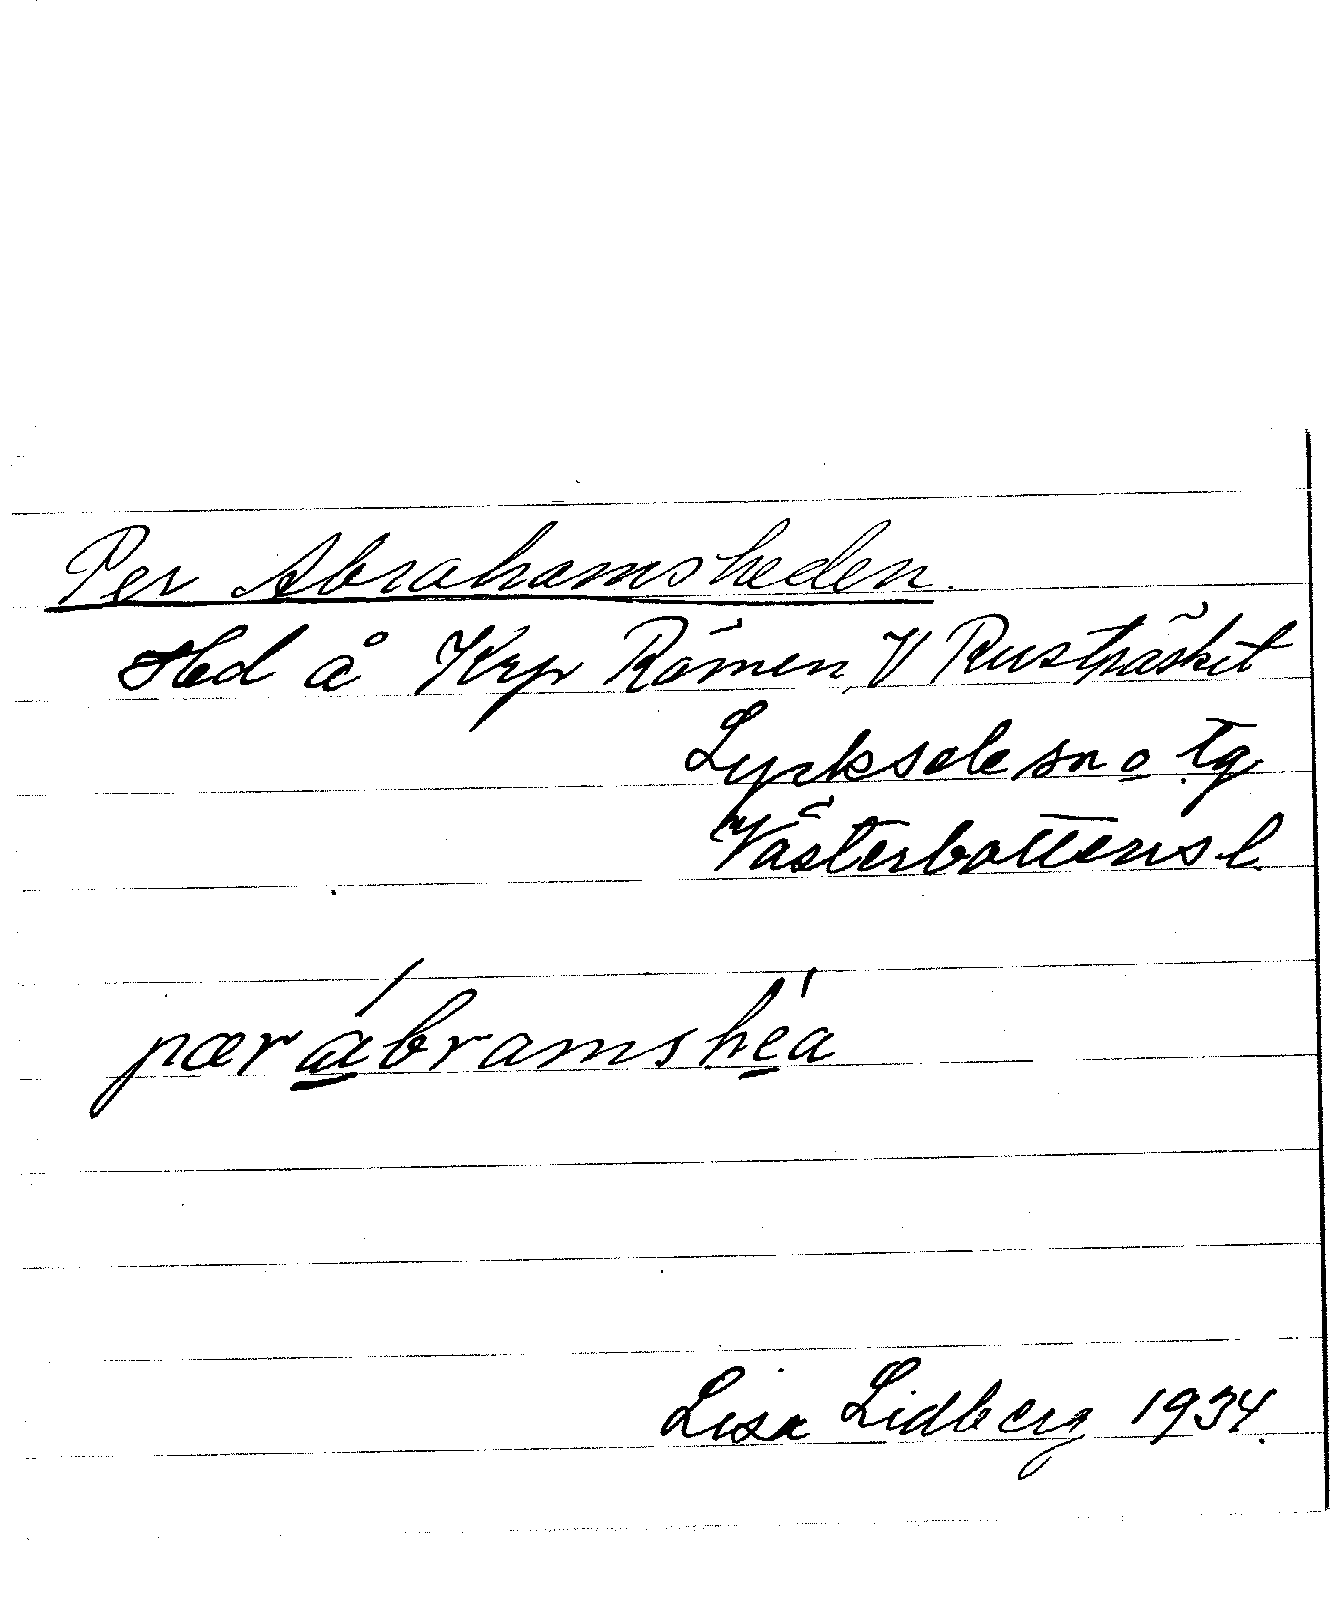 Per Abrahamsheden.
Hed å Krp Römen, V Rusträsket
Lycksele sn o tg
Västerbottens l.
pær ábramshéa
Lisa Lidberg 1934.